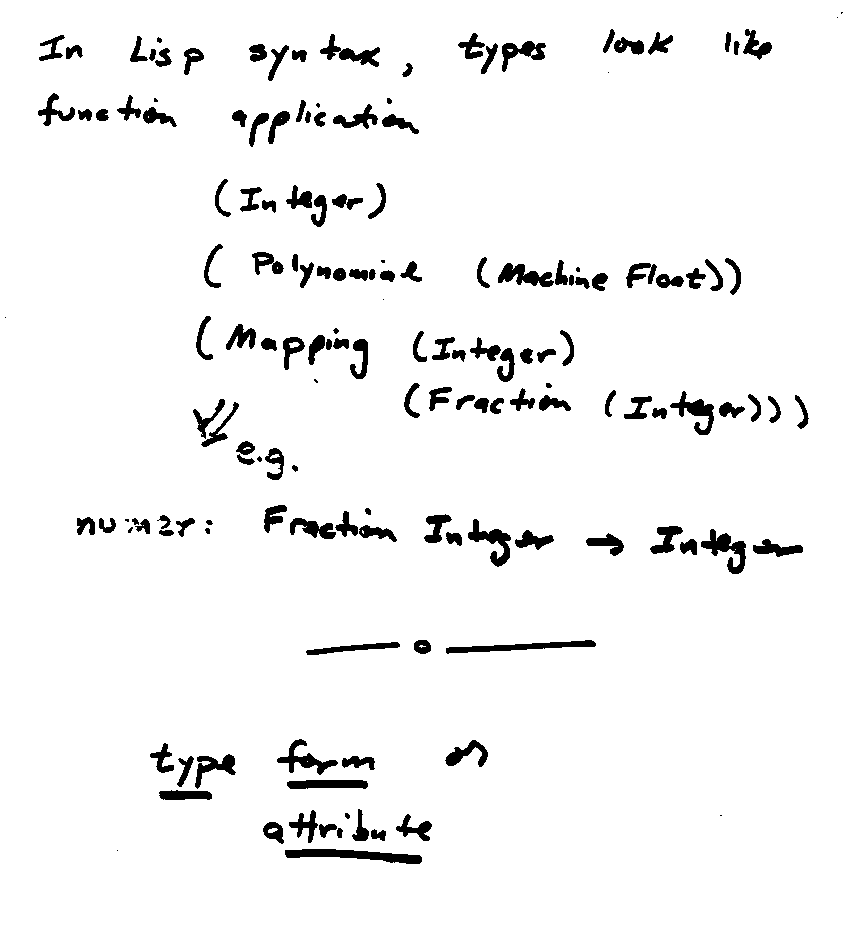 In Lisp syntax, types look like
function application
(Integer)
(Polynomial (Machine Float))
(Mapping (Integer)
(Fraction (Integer)))
e.g.
numer: Fraction Integer → Integer
type form
attribute